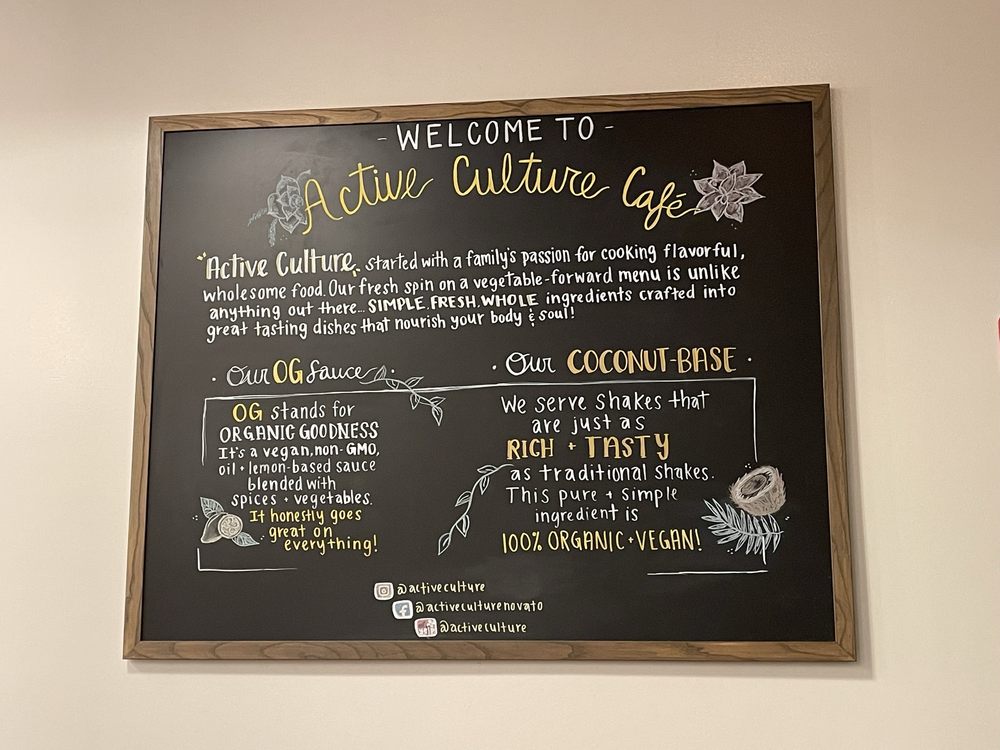 - WELCOME TO -
Active Culture Café
"Active Culture" started with a family's passion for cooking flavorful,
wholesome food. Our fresh spin on a vegetable-forward menu is unlike
anything out there... SIMPLE. FRESH. WHOLE ingredients crafted into
great tasting dishes that nourish your body & soul!
· Our OG Sauce ·
OG stands for
ORGANIC GOODNESS
It's a vegan, non-GMO,
oil + lemon-based sauce
blended with
spices + vegetables.
It honestly goes
great on
everything!
· Our COCONUT-BASE ·
We serve shakes that
are just as
RICH + TASTY
as traditional shakes.
This pure + simple
ingredient is
100% ORGANIC + VEGAN!
@activeculture
@activeculturenovato
@activeculture